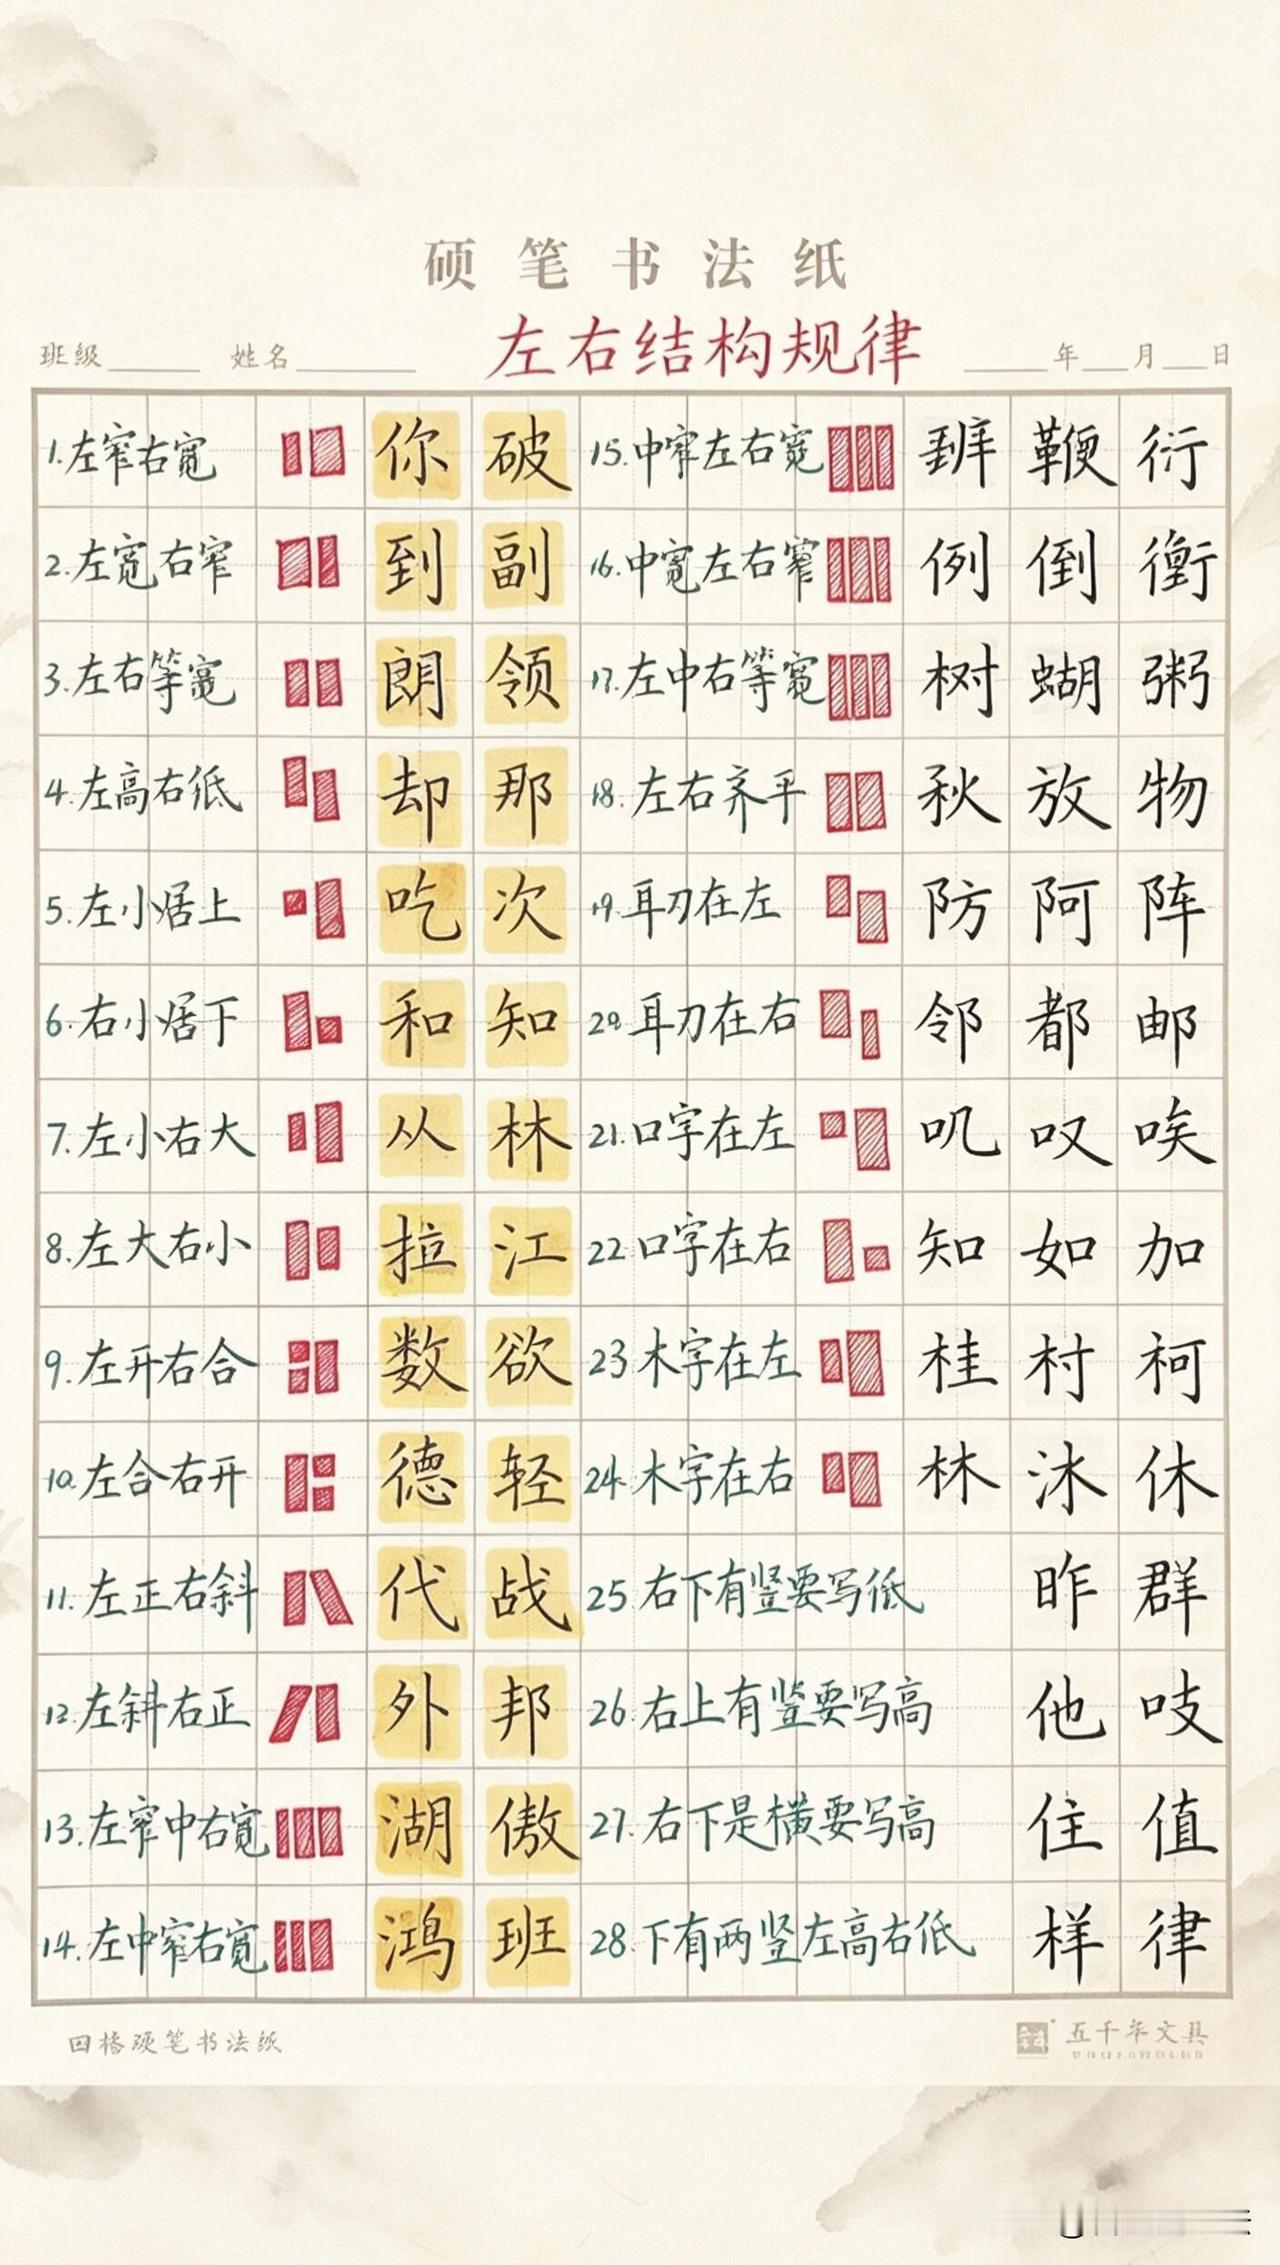 硕笔书法纸
左右结构规律
班级 姓名 年 月 日
1.左窄右宽 你 破 15.中窄左右宽 鞭 衍
2.左宽右窄 到 副 16.中宽左右窄 例 倒
3.左右等宽 朗 领 17.左中右等宽 树 蝴 粥
4.左高右低 却 那 18.左右齐平 秋 放 物
5.左小居上 吃 次 19.耳刀在左 防 阿 阵
6.右小居下 和 知 20.耳刀在右 邻 都 邮
7.左小右大 从 林 21.口字在左 叽 叹 唉
8.左大右小 拉 江 22.口字在右 知 如 加
9.左开右合 数 欲 23.木字在左 桂 村 柯
10.左合右开 德 轻 24.木字在右 林 沐 休
11.左正右斜 代 战 25.右下有竖要写低 昨 群
12.左斜右正 外 邦 26.右上有竖要写高 他 吱
13.左窄中右宽 湖 傲 27.右下是横要写高 住 值
14.左中窄右宽 鸿 班 28.下有两竖左高右低 样 律
格硬笔书法纸 五千年文具